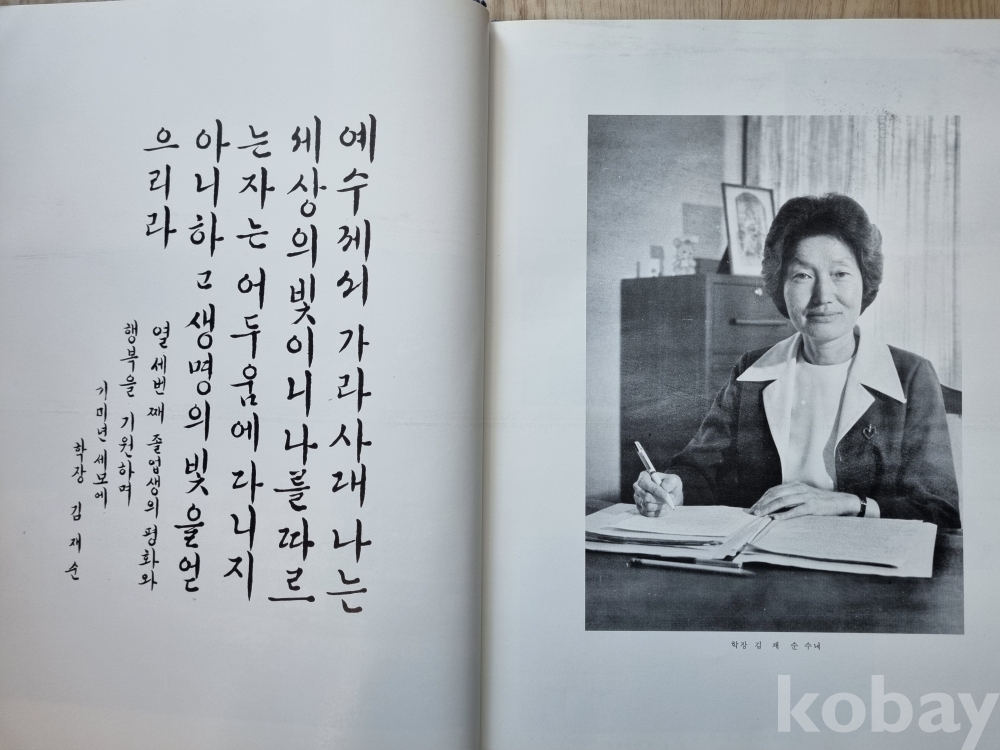 예수께서 가라사대 나는
세상의 빛이니 나를 따르
는 자는 어두움에 다니지
아니하고 생명의 빛을 얻
으리라
열세번째 졸업생의 평화와
행복을 기원하며
기미년 세모에
학장 김재순
학장 김 재 순 수녀
kobay